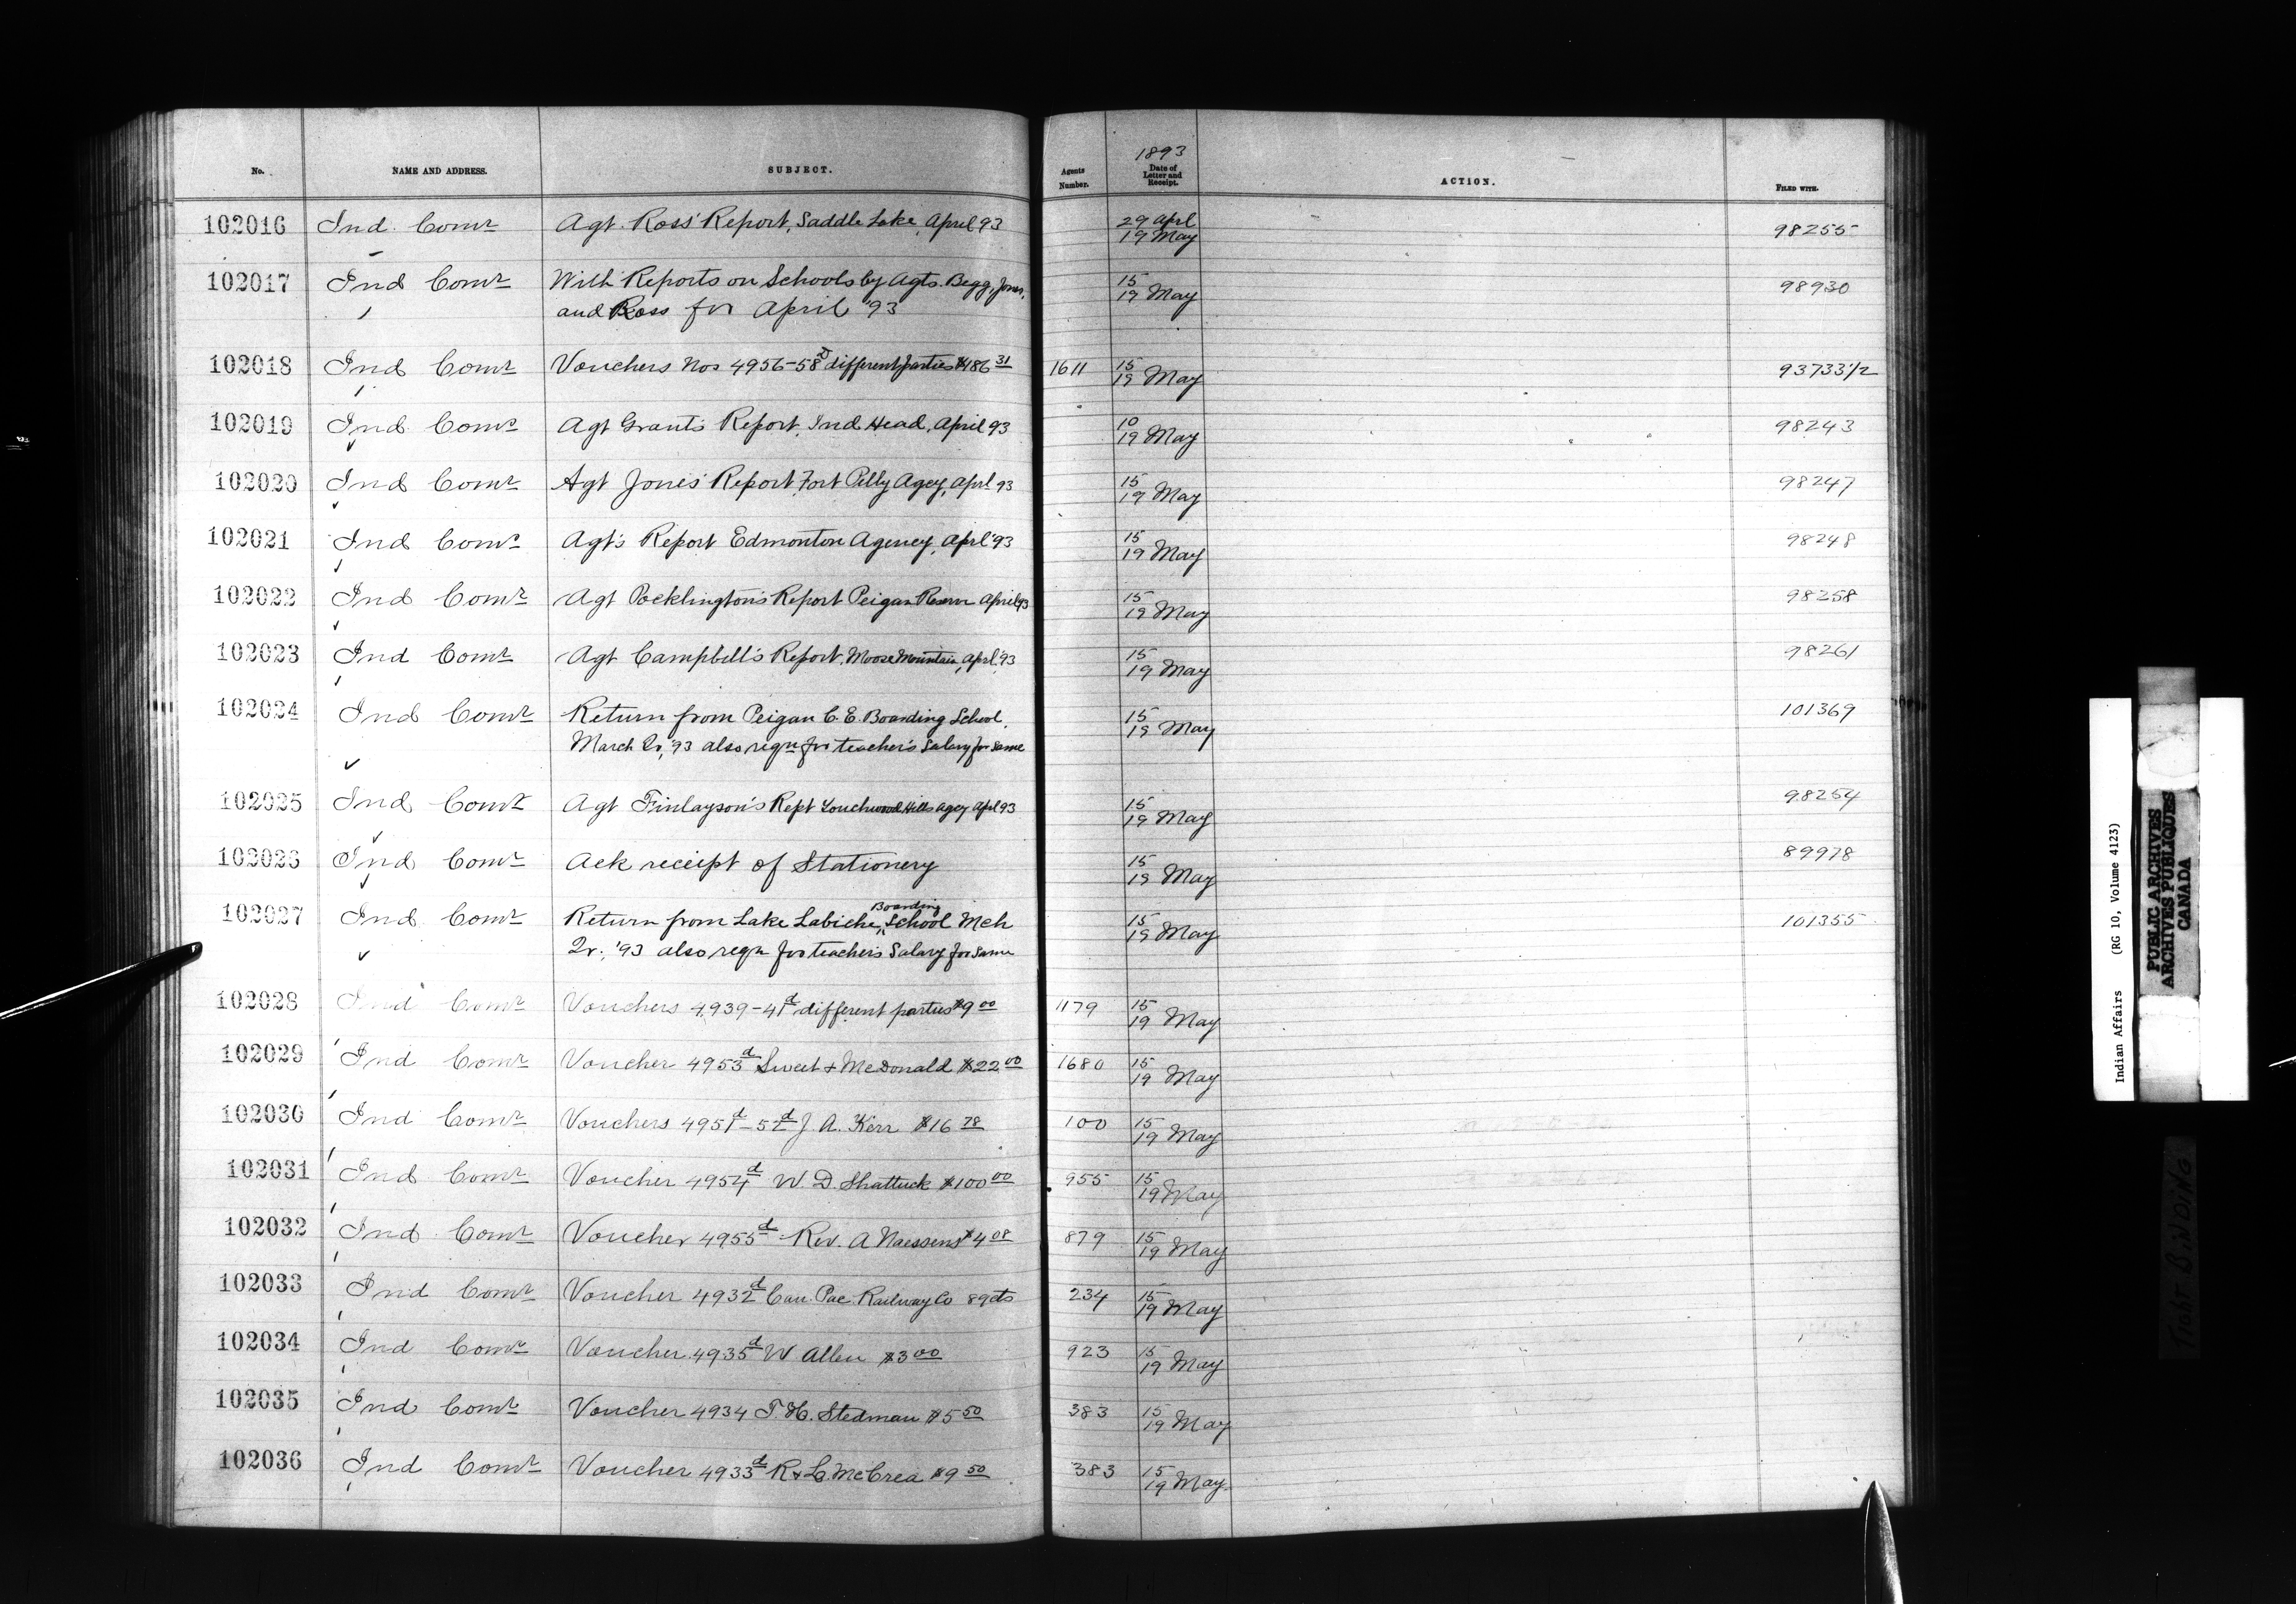 1893
No. NAME AND ADDRESS. SUBJECT. Agents Number. Date of Letter and Receipt. ACTION. FILED WITH.
102016 Ind. Comr Agt. Ross' Report, Saddle Lake, April 93 29 Aprl 19 May 98255
102017 Ind Comr With Reports on Schools by Agts. Begg, Jones, 15 19 May 98930
and Ross for April '93
102018 Ind Comr Vouchers Nos 4956-58 d different parties $486 31 1611 15 19 May 93733 1/2
102019 Ind Comr Agt Grant's Report, Ind Head, April 93 10 19 May 98243
102020 Ind Comr Agt Jones' Report Fort Pelly Agcy, Aprl 93 15 19 May 98247
102021 Ind Comr Agt's Report Edmonton Agency, Aprl '93 15 19 May 98248
102022 Ind Comr Agt Pocklington's Report Peigan Reserve April 93 15 19 May 98258
102023 Ind Comr Agt Campbell's Report, Moose Mountain, Aprl. 93 15 19 May 98261
102024 Ind Comr Return from Peigan C. E. Boarding School, 15 19 May 101369
March Qr, '93 also reqn for teacher's Salary for same
102025 Ind Comr Agt Finlayson's Rept Touchwood Hills Agcy Aprl 93 15 19 May 98254
102026 Ind Comr Ack receipt of Stationery 15 19 May 89978
102027 Ind Comr Return from Lake Labiche, Boarding School Mch 15 19 May 101355
Qr., '93 also reqn for teacher's Salary for same
102028 Ind Comr Vouchers 4939-41 d different parties $9 00 1179 15 19 May
102029 Ind Comr Voucher 4953 d Sweet & McDonald $22 00 1680 15 19 May
102030 Ind Comr Vouchers 4951 d - 52 d J. A. Kerr $16 78 100 15 19 May
102031 Ind Comr Voucher 4954 d W. D. Shattuck $100 00 955 15 19 May
102032 Ind Comr Voucher 4955 d Rev. A Naessens $4 08 879 15 19 May
102033 Ind Comr Voucher 4932 d Can. Pac. Railway Co 89 cts 234 15 19 May
102034 Ind Comr Voucher 4935 d W Allen $3 00 923 15 19 May
102035 Ind Comr Voucher 4934 T. H. Stedman $5 50 383 15 19 May
102036 Ind Comr Voucher 4933 d R & L McCrea $9 50 383 15 19 May
Indian Affairs (RG 10, Volume 4123)
PUBLIC ARCHIVES
ARCHIVES PUBLIQUES
CANADA
TIGHT BINDING